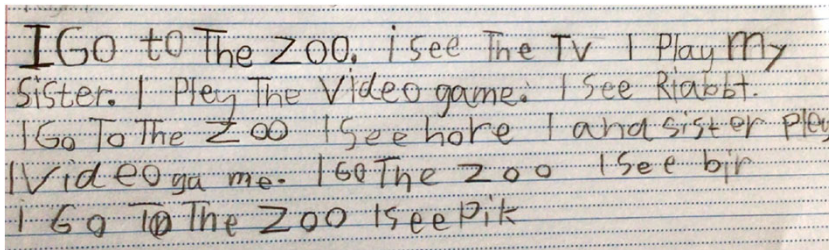 I Go to The Zoo. i see The TV I Play My
Sister. I Pley The Video game. I See Riabbt.
I Go To The Zoo I See hore I and sister pley
I Video ga me. I Go The zoo I See bir
I Go To The Zoo I see Pik